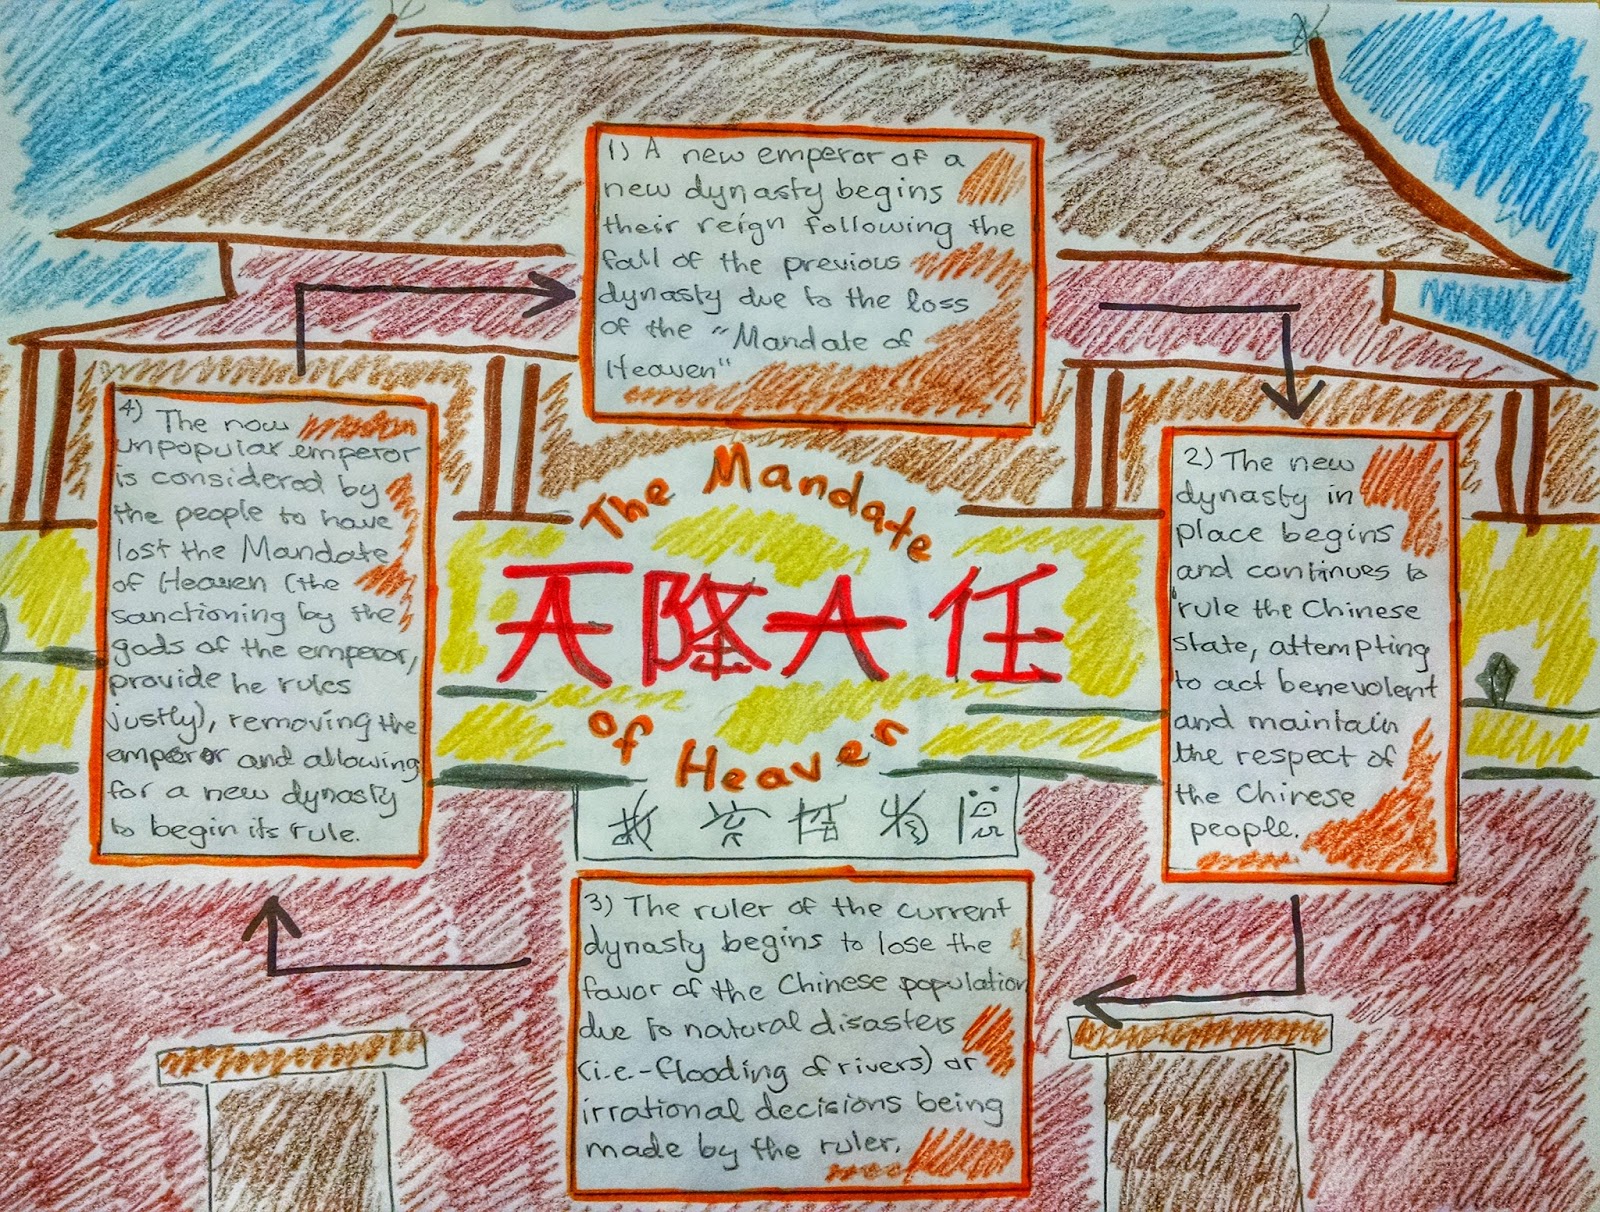 1) A new emperor of a
new dynasty begins
their reign following the
fall of the previous
dynasty due to the loss
of the "Mandate of
Heaven"
The Mandate
天降大任
of Heaven
2) The new
dynasty in
place begins
and continues to
rule the Chinese
state, attempting
to act benevolent
and maintain
the respect of
the Chinese
people.
3) The ruler of the current
dynasty begins to lose the
favor of the Chinese population
due to natural disasters
(i.e.-flooding of rivers) or
irrational decisions being
made by the ruler.
4) The now
unpopular emperor
is considered by
the people to have
lost the Mandate
of Heaven (the
sanctioning by the
gods of the emperor,
provide he rules
justly), removing the
emperor and allowing
for a new dynasty
to begin its rule.